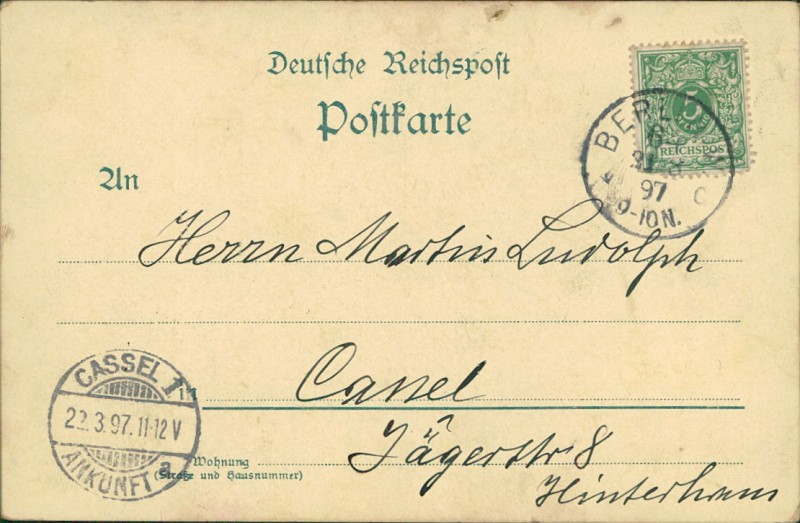 Deutsche Reichspost
Postkarte
5
REICHSPOST
BERLIN
97
9-10N.
C
An
Herrn Martin Ludolph
in Cassel
CASSEL 1
22.3.97.11-12V
ANKUNFT
a
Jägerstr 8
Wohnung
(Straße und Hausnummer)
Hinterhaus